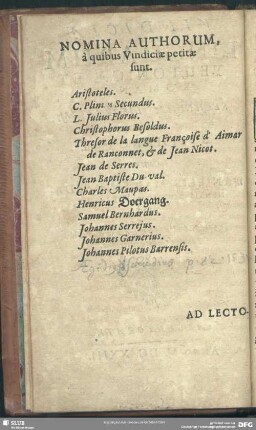 NOMINA AUTHORUM,
à quibus Vindiciæ petitæ
sunt.
Aristoteles.
C. Plinius Secundus.
L. Julius Florus.
Christophorus Besoldus.
Thresor de la langue Françoise d' Aimar
de Ranconnet, & de Jean Nicot.
Jean de Serres.
Jean Baptiste Du-val.
Charles Maupas.
Henricus Doergang.
Samuel Bernhardus.
Johannes Serrejus.
Johannes Garnerius.
Johannes Pilotus Barrensis.
AD LECTO-
SLUB
DFG